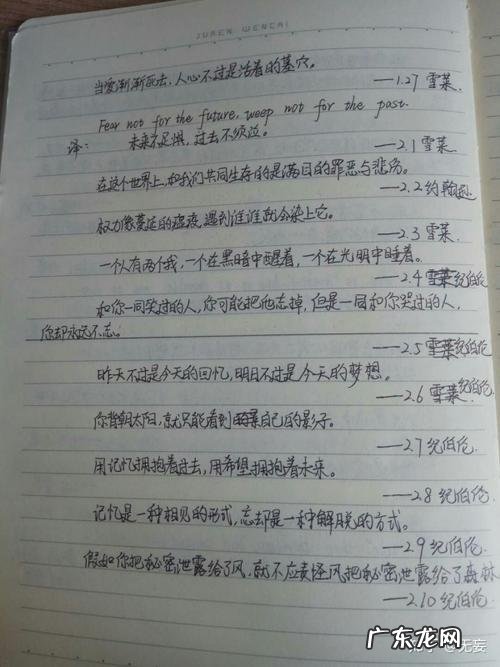 JUREN WENCAI
当爱渐渐死去,人心不过是活着的墓穴。
——1.27 雪莱.
Fear not for the future, weep not for the past.
译: 未来不足惧,过去不须泣。
——2.1 雪莱
在这个世界上,和我们共同生存的是满目的罪恶与悲伤。
——2.2 约翰逊
权力像蔓延的瘟疫,遇到谁谁就会染上它。
——2.3 雪莱.
一个人有两个我,一个在黑暗中醒着,一个在光明中睡着。
——2.4 雪莱纪伯伦
和你一同笑过的人,你可能把他忘掉,但是一同和你哭过的人,
你却永远不忘。
——2.5 雪莱纪伯伦
昨天不过是今天的回忆,明日不过是今天的梦想。
——2.6 雪莱纪伯伦
你背朝太阳,就只能看到自己的影子。
——2.7 纪伯伦
用记忆拥抱着过去,用希望拥抱着未来。
——2.8 纪伯伦
记忆是一种相见的形式,忘却是一种解脱的方式。
——2.9 纪伯伦
假如你把秘密泄露给了风,就不应责怪风把秘密泄露给了森林
——2.10 纪伯伦
无妄
广东龙网